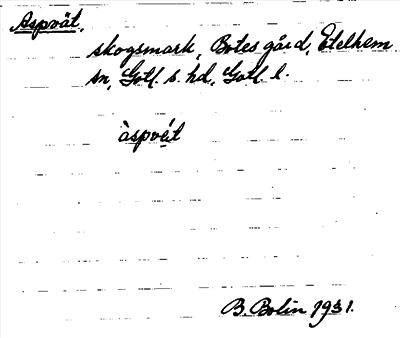 Aspvät,
skogsmark, Botes gård, Etelhem
sn, Gotl. s. hd, Gotl. l.
àspvét
B. Bolin 1931.